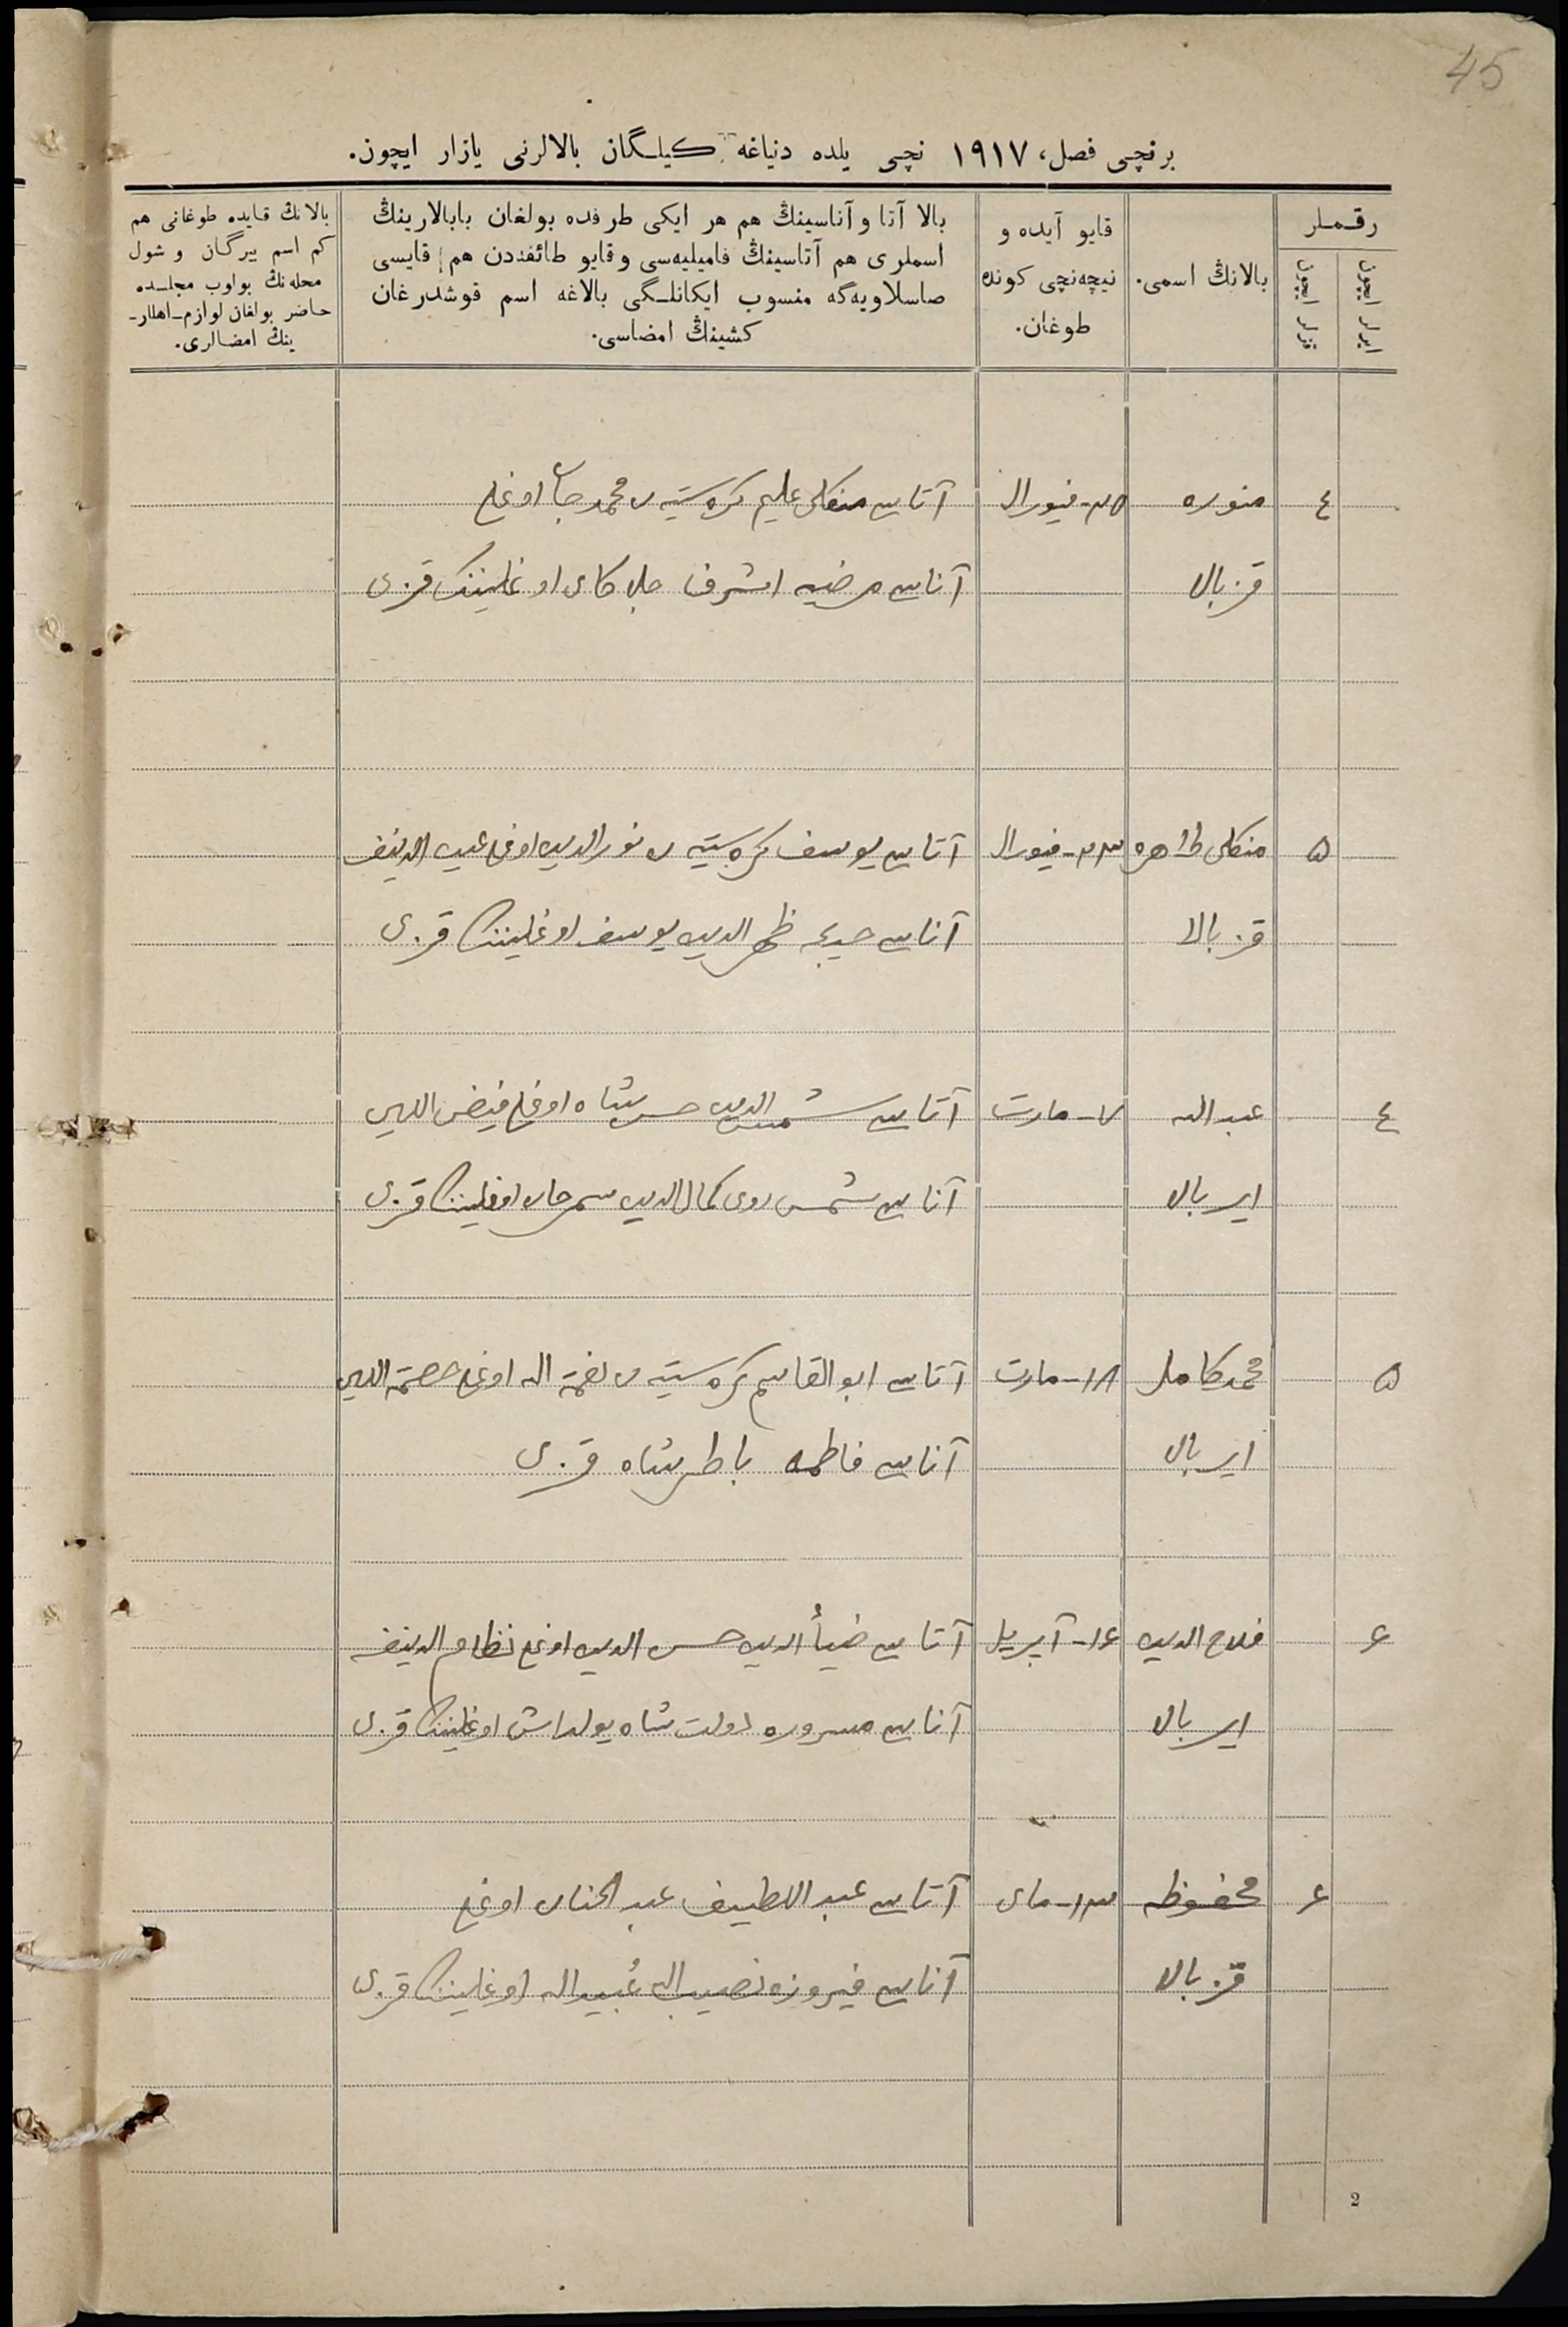 45
برنچی فصل، ۱۹۱۷ نچی یلده دنیاغه کیلـگان بالالرنی یازار ایچون.
رقـمـلر
ایرلر ایچون
قزلر ایچون
بالانڭ اسمی.
قایو آیده و
نیچه‌نچی کونده
طوغان.
بالا آتا و آناسینڭ هم هر ایکی طرفده بولغان بابالارینڭ
اسملری هم آتاسینڭ فامیلیه‌سی وقایو طائفه‌دن هم قایسی
صاسلاویه‌گه منسوب ایکانلـگی بالاغه اسم قوشدرغان
کشینڭ امضاسی.
بالانڭ قـایده طوغانی هم
کم اسم بیرگـان و شول
محله‌نڭ بولوب مجلـسده
حـاضر بولغان لوازم-اهللر-
ینڭ امضـالری.
٤ منوره ٢٥-فیورال آتاسی منکلی علیم کره‌ستیه‌ن محمدجان اوغلی
قز بالا آناسی مرضیه اشرف اوغلیننڭ قزی
٥ منکلی طاهره ٢٣-فیورال آتاسی یوسف کره‌ستیه‌ن نورالدین اوغلی
قز بالا آناسی ظهرالدین یوسف اوغلیننڭ قزی
٤ عبدالله ٧-مارت آتاسی شمس الدین حسن شاه اوغلی فیض اللهین
ایر بالا آناسی شمس روی کمال الدین اوغلیننڭ قزی
٥ محمدکامل ١٨-مارت آتاسی ابو القاسم کره‌ستیه‌ن نعمة الله اوغلی
ایر بالا آناسی فاطمه باطرشاه قزی
٦ فلاح الدین ١٤-آپریل آتاسی ضیأ الدین حسن الدین اوغلی نظام الدینف
ایر بالا آناسی مسروره دولت شاه یولداش اوغلیننڭ قزی
٦ محفوظه ١٣-مای آتاسی عبد اللطیف عبد الحنان اوغلی
قز بالا آناسی فیروزه نصیب الله عبیدالله اوغلیننڭ قزی
2